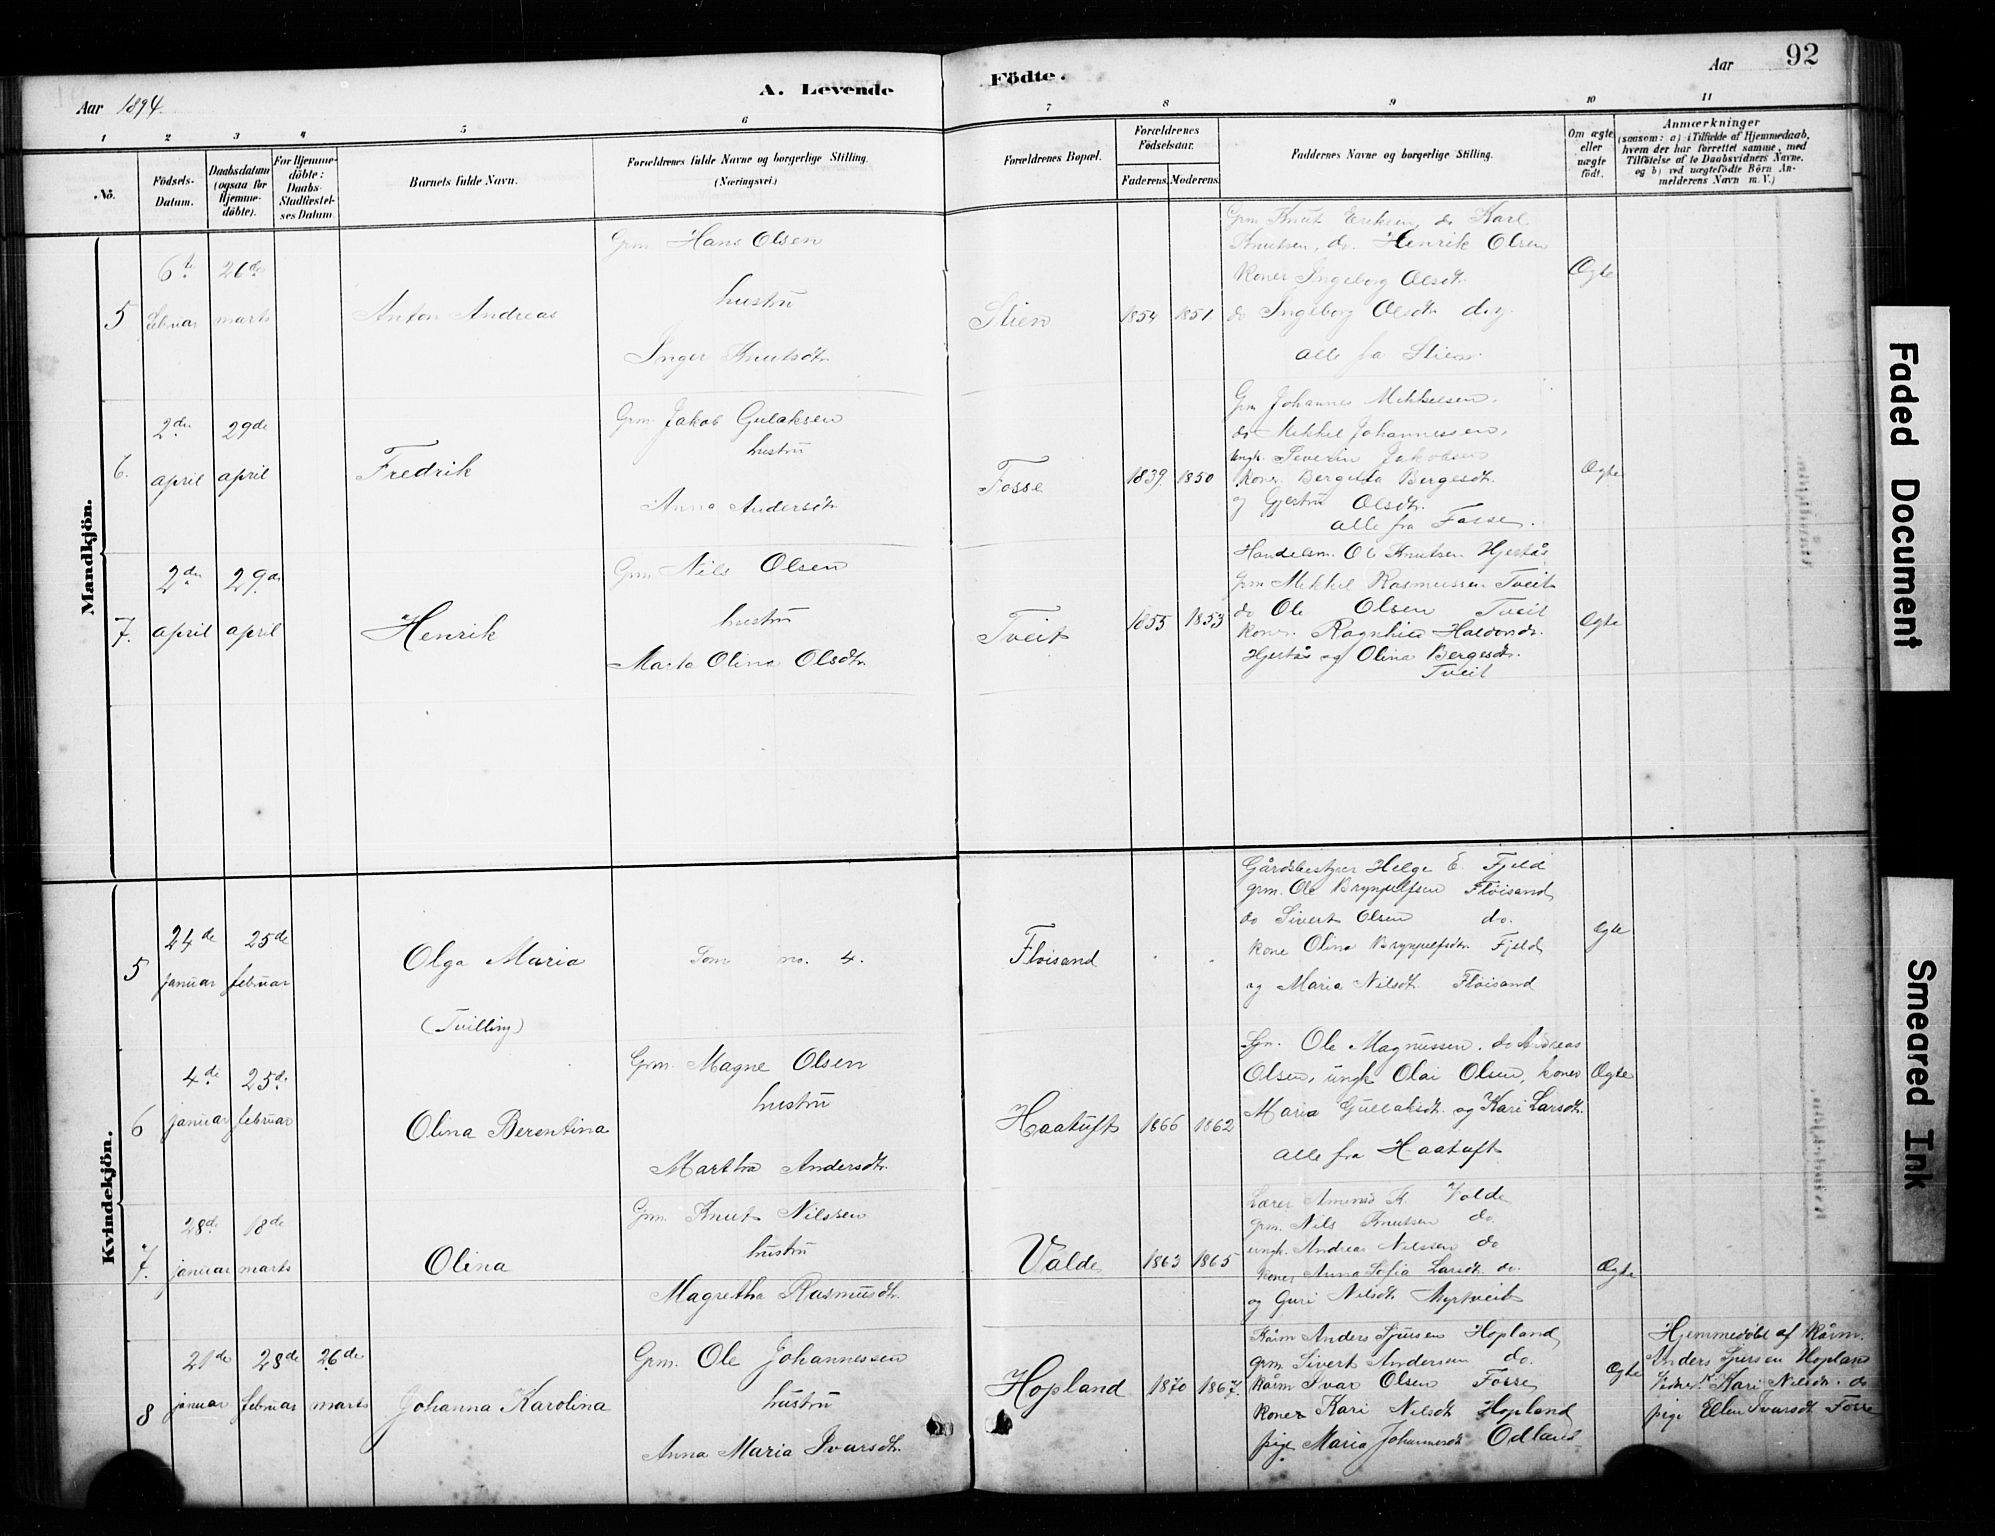 92
Aar 1894.
A. Levende Födte.
Aar
1 2 3 4 5 6 7 8 9 10 11
No.
Födsels-
Datum.
Daabsdatum
(ogsaa for
Hjemme-
döbte).
For Hjemme-
döbte:
Daabs-
Stadfæstel-
ses Datum.
Barnets fulde Navn.
Forældrenes fulde Navne og borgerlige Stilling.
(Næringsvei.)
Forældrenes Bopæl.
Forældrenes
Födselsaar.
Faderens. Moderens.
Faddernes Navne og borgerlige Stilling.
Om ægte
eller
uægte
födt.
Anmærkninger
(saasom: a) i Tilfælde af Hjemmedaab,
hvem der har forrettet samme, med
Tilföielse af to Daabsvidners Navne.
og b) ved uægtefödte Börn An-
melderens Navn m. V.)
Mandkjön.
5
6te
februar
26de
marts
Anton Andreas
Grm. Hans Olsen
hustru
Inger Knutsdtr.
Stien
1854 1851
Grm Knut Eriksen, do Karl
Knutsen, do. Henrik Olsen
Koner Ingeborg Olsdtr
do Ingeborg Olsdtr d.y.
alle fra Stien.
Ægte
6.
2den
april
29de
april
Fredrik
Grm. Jakob Gulaksen
hustru
Anna Andersdtr.
Fosse
1839. 1850
Grm Johannes Mikkelsen,
do Mikkel Johannessen,
ungk. Severin Jakobsen
Koner Bergitta Bergesdtr.
og Gjertru Olsdtr.
alle fra Fosse.
Ægte
7.
2den
april
29de
april
Henrik
Grm. Nils Olsen
hustru
Marta Olina Olsdtr.
Tveit
1855 1853
Handelsm. Ole Knutsen Hjertås
Grm Mikkel Rasmussen Tveit
do Ole Olsen Tveit
Koner. Ragnhild Haldorsdr.
Hjertås og Olina Bergesdtr.
Tveit
Ægte
Kvindekjön.
5
24de
januar
25de
februar
Olga Maria
(Tvilling)
Som no. 4.
Fløisand
Gårdsbestyrer Helge E. Fjeld
grm. Ole Brynjulfsen Fløisand
do Sivert Olsen do.
kone Olina Brynjulfsdtr. Fjeld
og Maria Nilsdtr. Fløisand
Ægte
6
4de
januar
25de
februar
Olina Berentina
Grm. Magne Olsen
hustru
Martha Andersdtr.
Haatuft
1866 1862
Ole Magnussen. do Andreas
Olsen, ungk Olai Olsen, koner
Maria Gullaksdtr. og Kari Larsdtr.
alle fra Haatuft
Ægte
7.
28de
januar
18de
marts
Olina
Grm. Knut Nilssen
hustru
Magretha Rasmusdtr.
Valde
1863 1865
Lærer K. Valde
grm. Nils Knutsen do.
ungk. Andreas Nilssen do
koner Anna Sofia Larsdtr. do.
og Guri Nilsdtr Myrtveit
Ægte
8
21de
januar
28de
februar
26de
marts
Johanna Karolina
Grm. Ole Johannessen
hustru
Anna Maria Ivarsdtr.
Hopland
1870 1867.
Kårm Anders Sjursen Hopland
grm. Sivert Andersen do.
kårm Ivar Olsen Fosse
koner Kari Nilsdtr Hopland
pige Maria Johannesdtr Odland
Ægte
Hjemmedøbt af kårm.
Anders Sjursen Hopland
Vidner: K. Kari Nilsdtr. do
pige Ellen Ivarsdtr Fosse
Faded Document
Smeared Ink